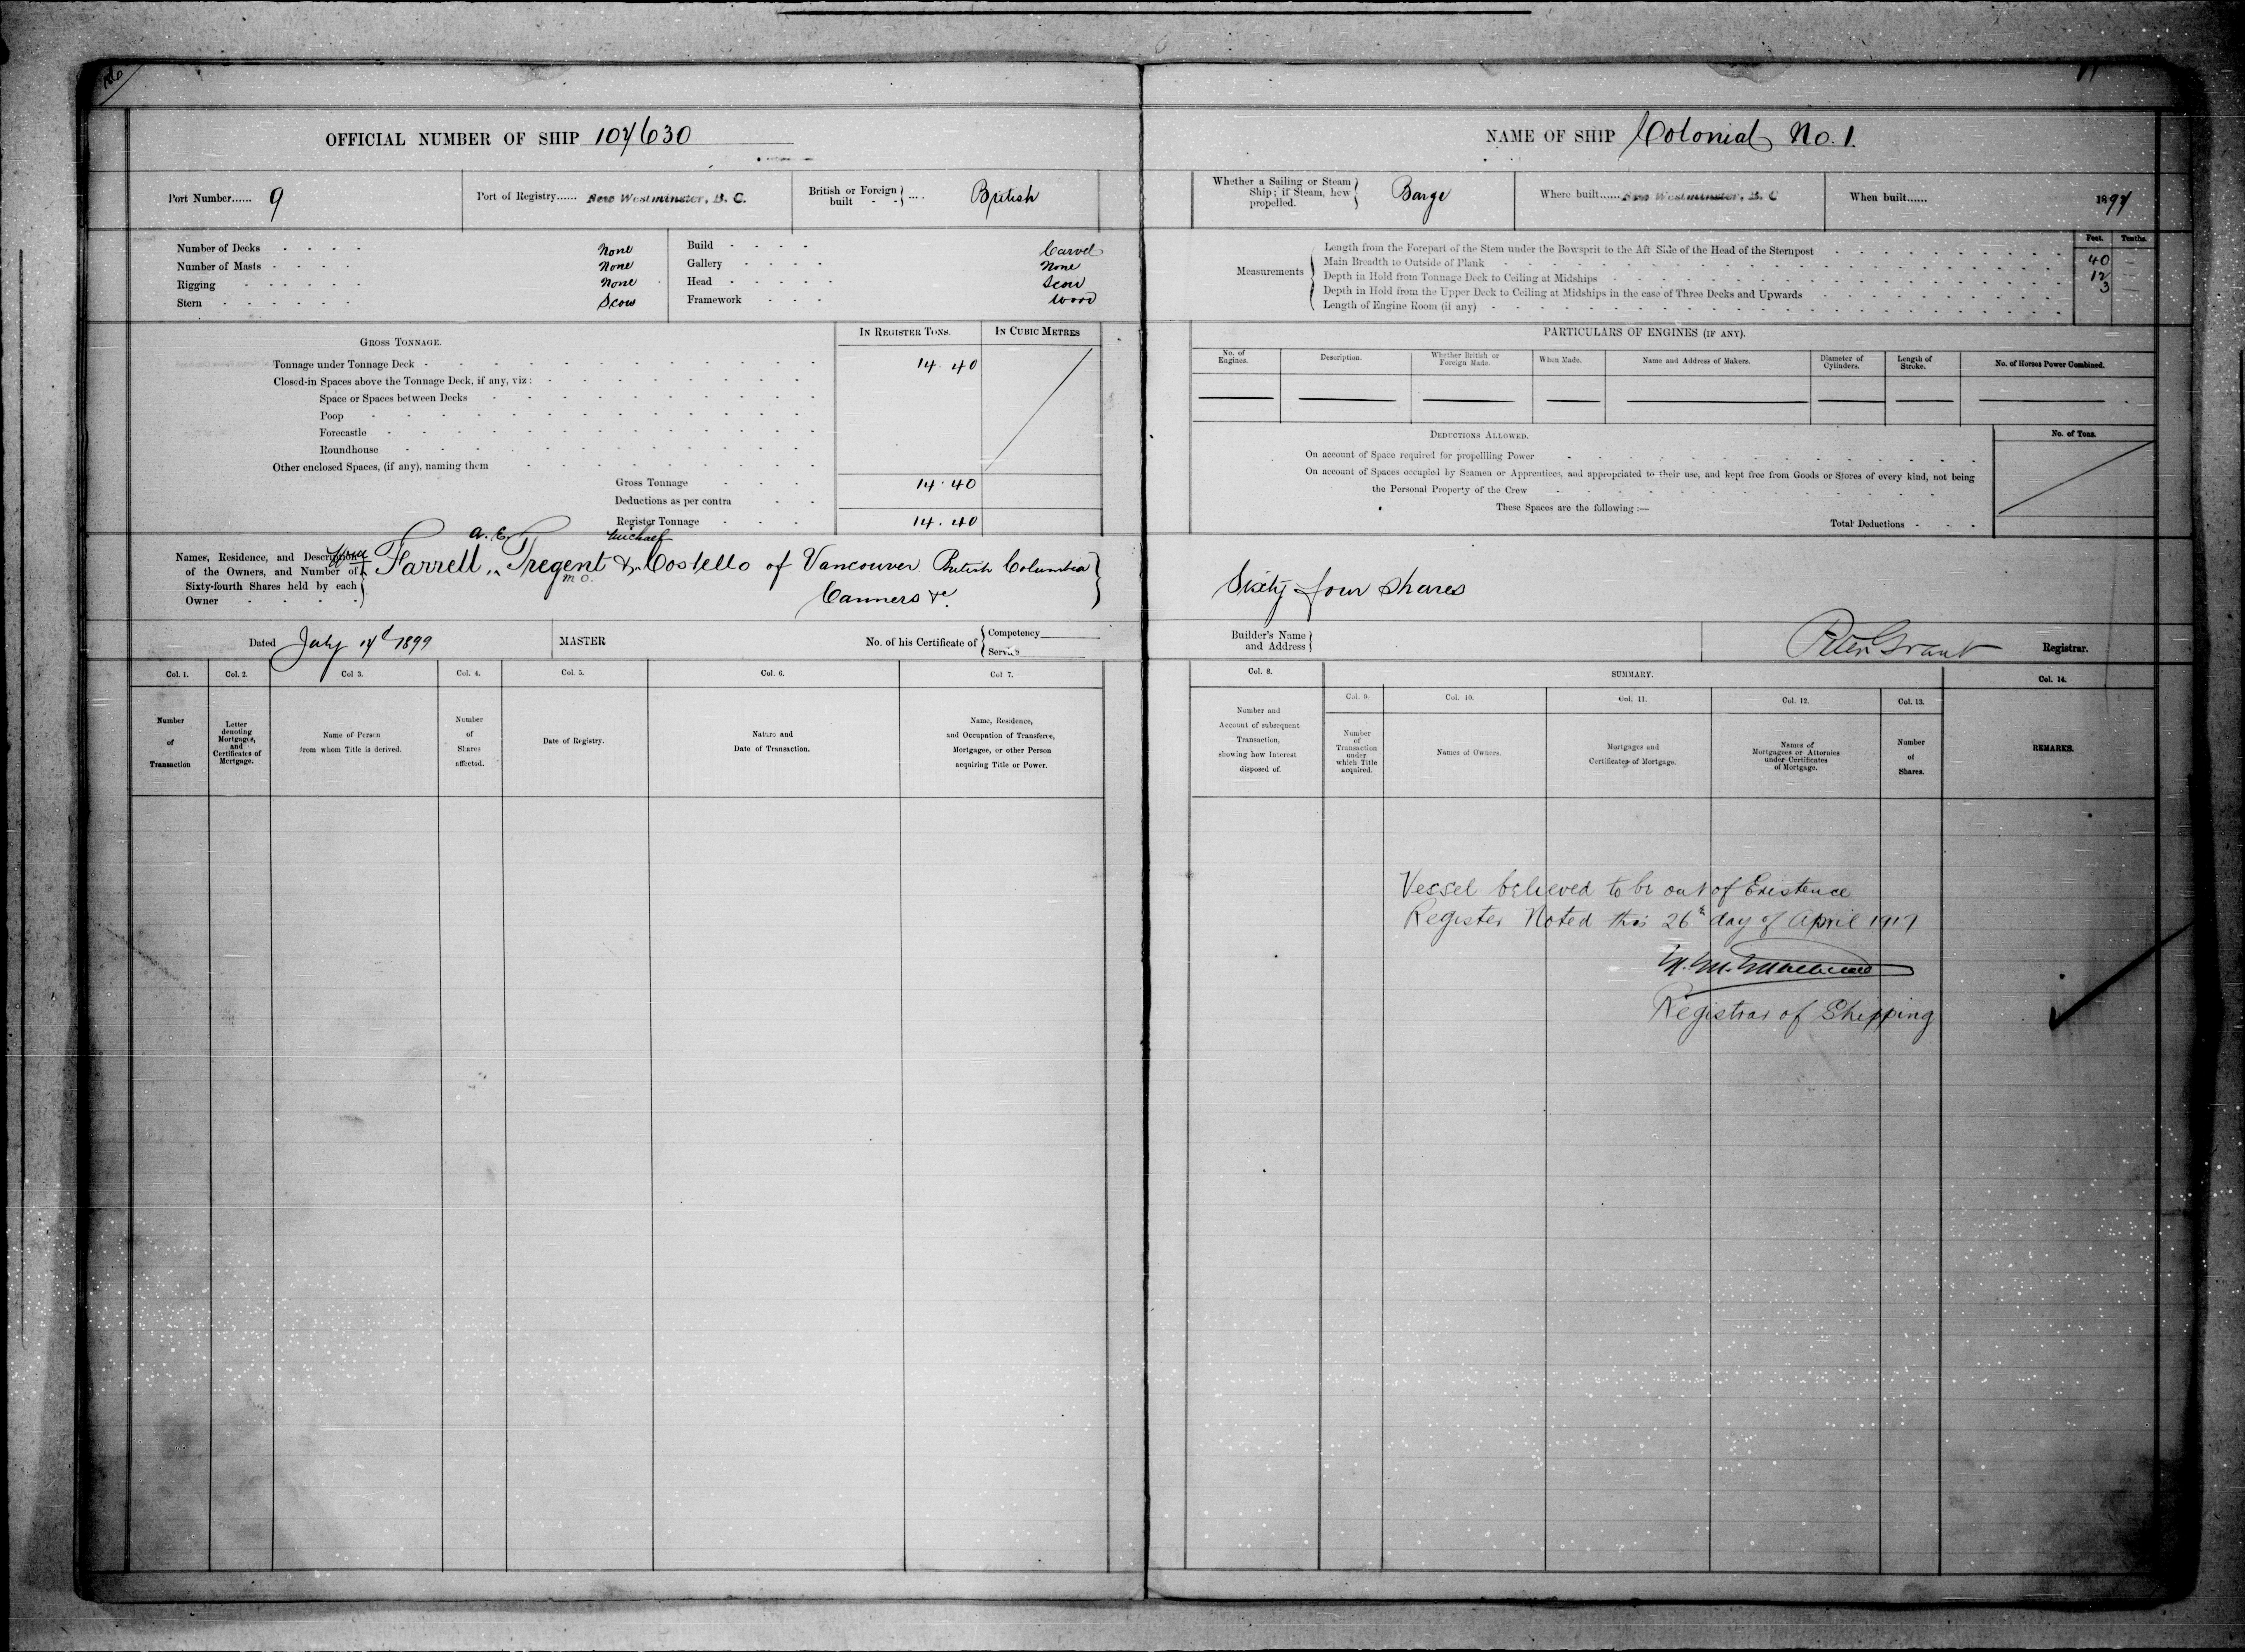 OFFICIAL NUMBER OF SHIP 107630
Port Number...... 9
Port of Registry...... New Westminster, B. C.
British or Foreign built - - } .... British
Number of Decks - - - - None
Number of Masts - - - - None
Rigging - - - - - None
Stern - - - - - - Scow
Build - - - - Carvel
Gallery - - - - None
Head - - - - - Scow
Framework - - - Wood
GROSS TONNAGE.
IN REGISTER TONS.
IN CUBIC METRES
Tonnage under Tonnage Deck - 14.40
Closed-in Spaces above the Tonnage Deck, if any, viz :
Space or Spaces between Decks
Poop
Forecastle
Roundhouse
Other enclosed Spaces, (if any), naming them
Gross Tonnage 14.40
Deductions as per contra
Register Tonnage 14.40
Names, Residence, and Description of the Owners, and Number of Sixty-fourth Shares held by each Owner
A. E. Michael
Farrell, Tregent & Costello of Vancouver British Columbia
M O.
Canners &c.
Dated July 14th 1899
MASTER
No. of his Certificate of { Competency
Service
Col. 1.
Number of Transaction
Col. 2.
Letter denoting Mortgages, and Certificates of Mortgage.
Col 3.
Name of Person from whom Title is derived.
Col. 4.
Number of Shares affected.
Col. 5.
Date of Registry.
Col. 6.
Nature and Date of Transaction.
Col 7.
Name, Residence, and Occupation of Transferee, Mortgagee, or other Person acquiring Title or Power.
NAME OF SHIP Colonial No. 1.
Whether a Sailing or Steam Ship; if Steam, how propelled. } Barge
Where built...... New Westminster, B. C
When built...... 1897
Feet. Tenths.
Measurements
Length from the Forepart of the Stem under the Bowsprit to the Aft Side of the Head of the Sternpost 40 —
Main Breadth to Outside of Plank 12 —
Depth in Hold from Tonnage Deck to Ceiling at Midships 3 —
Depth in Hold from the Upper Deck to Ceiling at Midships in the case of Three Decks and Upwards
Length of Engine Room (if any)
PARTICULARS OF ENGINES (IF ANY).
No. of Engines.
Description.
Whether British or Foreign Made.
When Made.
Name and Address of Makers.
Diameter of Cylinders.
Length of Stroke.
No. of Horses Power Combined.
DEDUCTIONS ALLOWED.
No. of Tons.
On account of Space required for propelling Power
On account of Spaces occupied by Seamen or Apprentices, and appropriated to their use, and kept free from Goods or Stores of every kind, not being
the Personal Property of the Crew
These Spaces are the following :—
Total Deductions - - -
Sixty four shares
Builder's Name and Address }
Peter Grant Registrar.
Col. 8.
Number and Account of subsequent Transaction, showing how Interest disposed of.
SUMMARY.
Col. 9.
Number of Transaction under which Title acquired.
Col. 10.
Names of Owners.
Col. 11.
Mortgages and Certificates of Mortgage.
Col. 12.
Names of Mortgagees or Attornies under Certificates of Mortgage.
Col. 13.
Number of Shares.
Col. 14.
REMARKS.
Vessel believed to be out of Existence
Register Noted this 26th day of April 1917
Registrar of Shipping